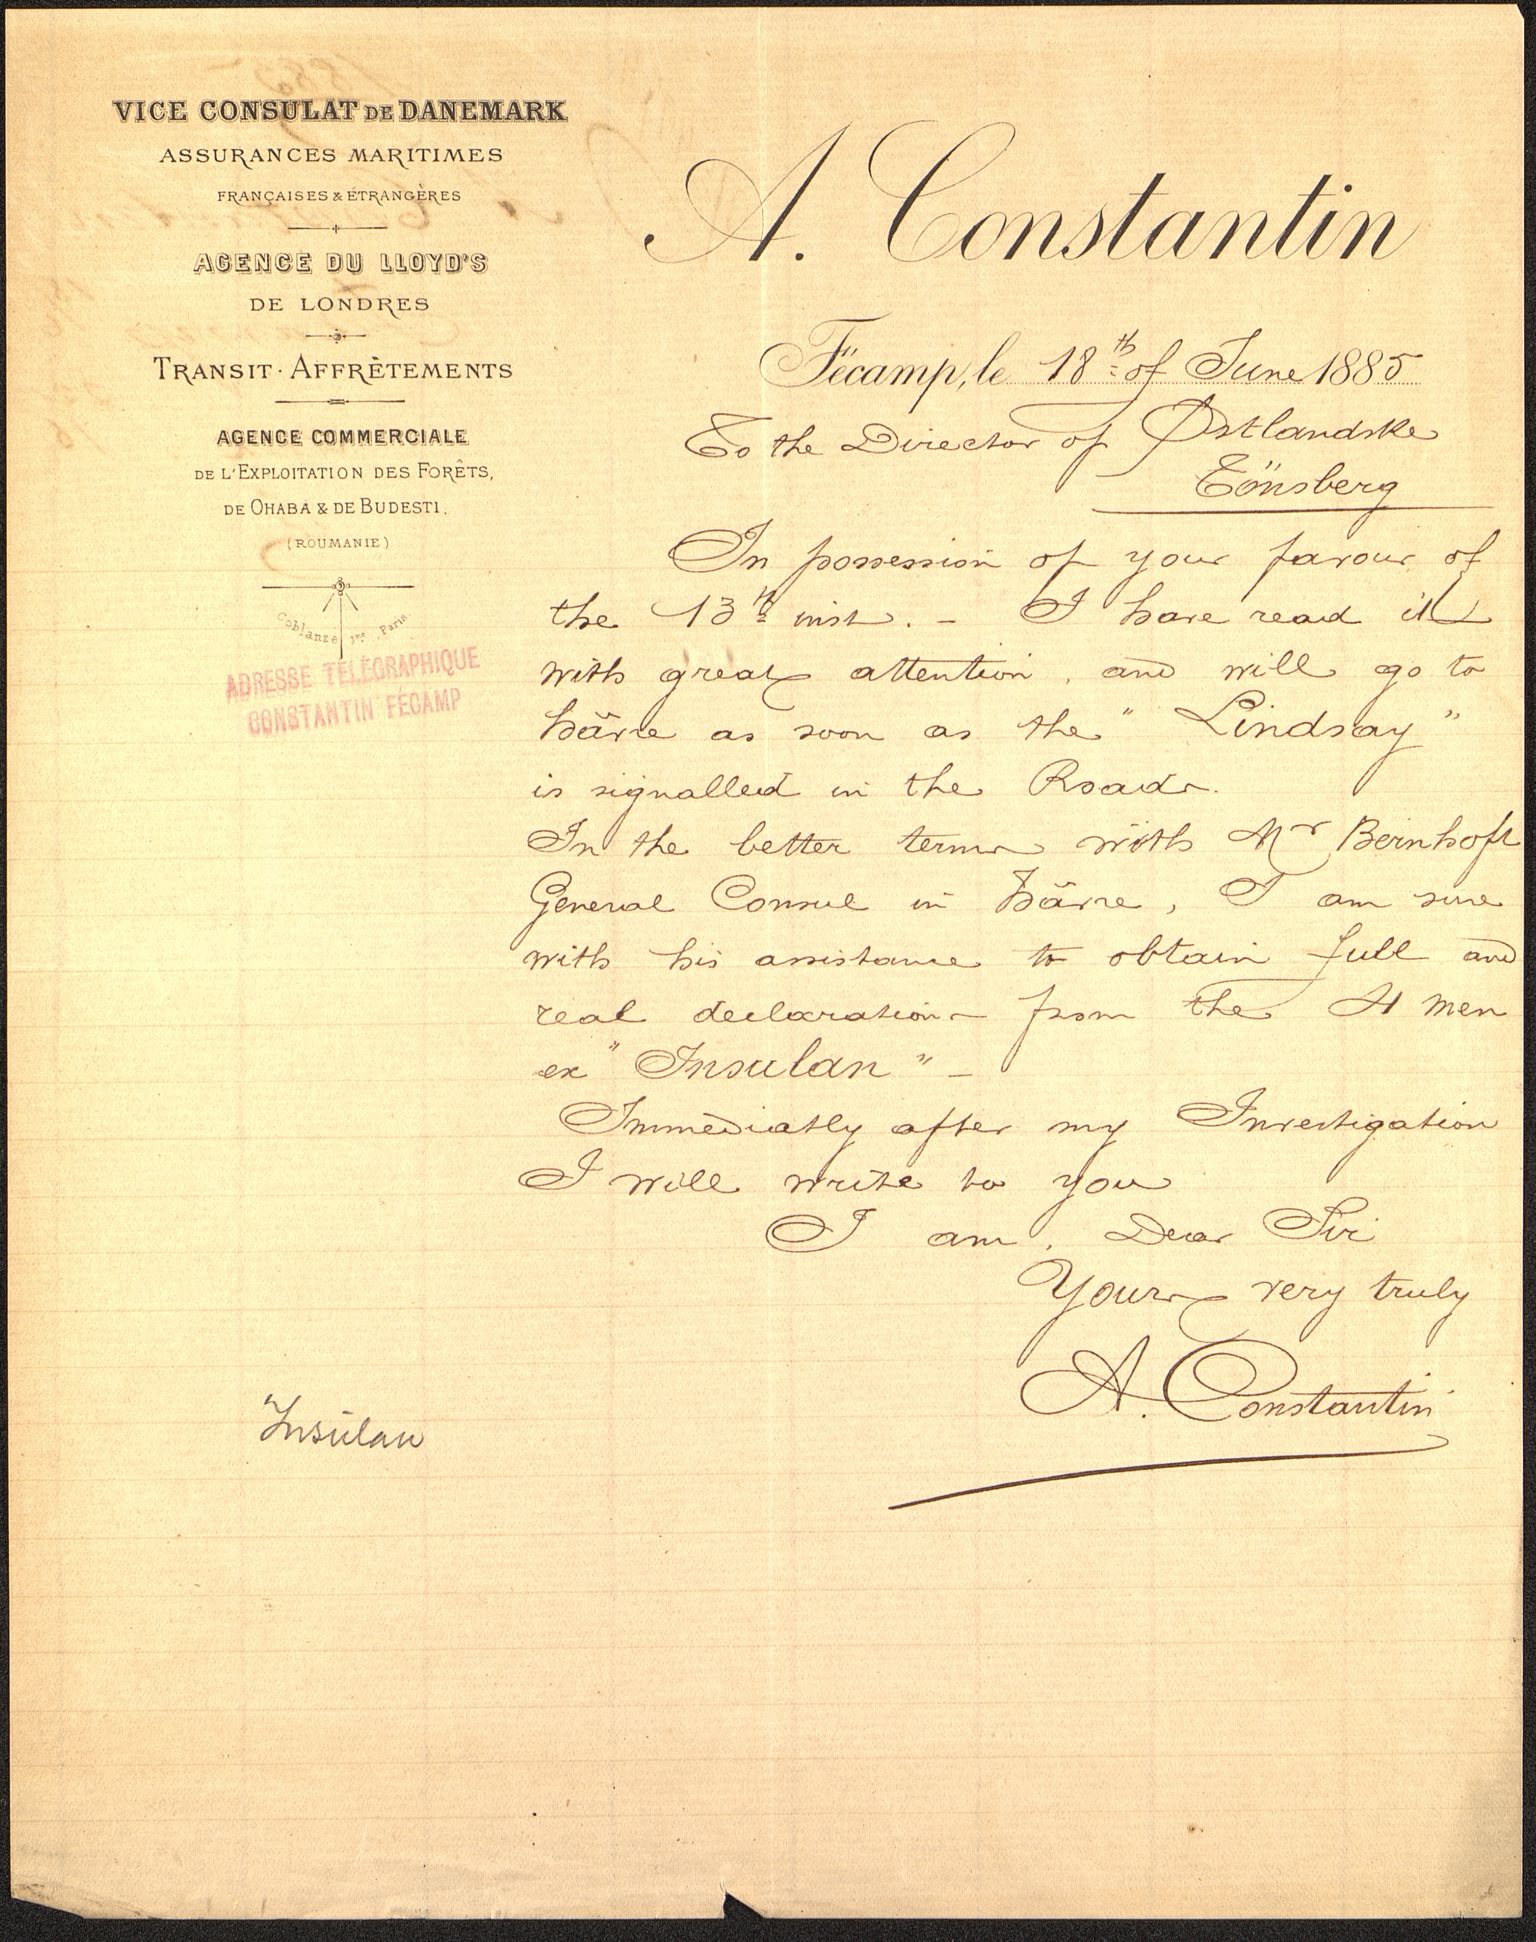 VICE CONSULAT DE DANEMARK
ASSURANCES MARITIMES
FRANÇAISES & ÉTRANGÈRES
AGENCE DU LLOYD'S
DE LONDRES
TRANSIT · AFFRÈTEMENTS
AGENCE COMMERCIALE
DE L'EXPLOITATION DES FORÊTS,
DE OHABA & DE BUDESTI.
(ROUMANIE)
Coblanze Jne. Paris
ADRESSE TÉLÉGRAPHIQUE
CONSTANTIN FÉCAMP
A. Constantin
Fécamp, le 18th of June 1885
To the Director of Østlandske
Tönsberg
In possession of your favour of
the 13th inst. - I have read it
with great attention, and will go to
hâvre as soon as the "Lindsay"
is signalled in the Roads.
In the better terms with Mr Bernhoft
General Consul in hâvre, I am sure
with his assistance to obtain full and
real declarations from the 4 men
ex "Insulan" -
Immediatly after my Investigation
I will write to you
I am, Dear Sir
Yours very truly
A. Constantin
Insulan